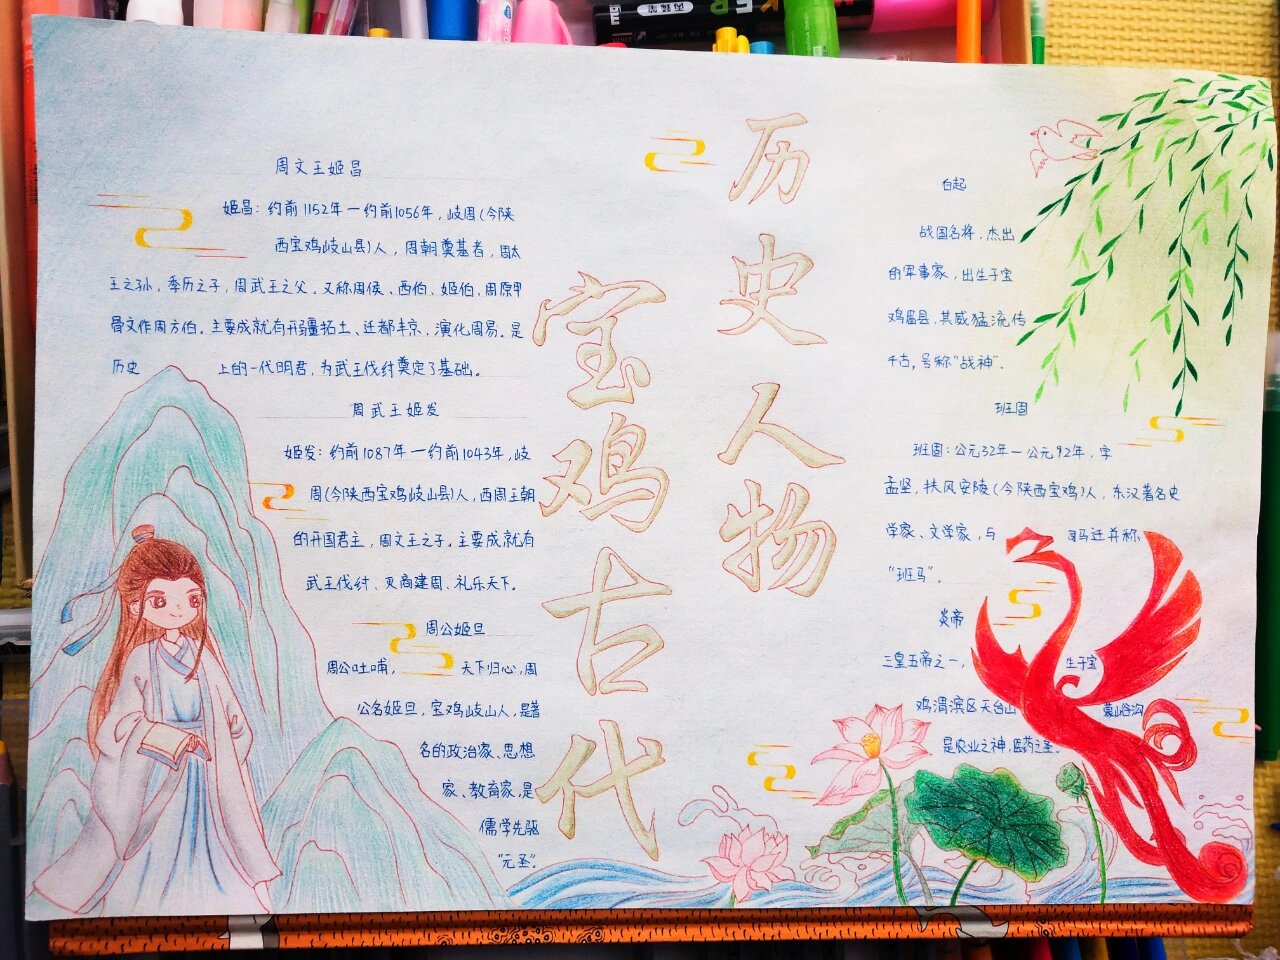 宝鸡古代
历史人物
周文王姬昌
姬昌：约前1152年一约前1056年，岐周(今陕
西宝鸡岐山县)人，周朝奠基者，周太
王之孙，季历之子，周武王之父。又称周侯、西伯、姬伯、周原甲
骨文作周方伯。主要成就有开疆拓土、迁都丰京、演化周易。是
历史 上的一代明君，为武王伐纣奠定了基础。
周武王姬发
姬发：约前1087年一约前1043年，岐
周(今陕西宝鸡岐山县)人，西周王朝
的开国君主，周文王之子，主要成就有
武王伐纣、灭商建周、礼乐天下。
周公姬旦
周公吐哺， 天下归心，周
公名姬旦，宝鸡岐山人，是著
名的政治家、思想
家、教育家，是
儒学先驱
“元圣”。
白起
战国名将，杰出
的军事家，出生于宝
鸡眉县，其威猛流传
千古，号称“战神”。
班固
班固：公元32年一公元92年，字
孟坚，扶风安陵(今陕西宝鸡)人，东汉著名史
学家、文学家，与 司马迁并称
“班马”。
炎帝
三皇五帝之一， 生于宝
鸡渭滨区天台山 蒙山谷沟
是农业之神，医药之圣。